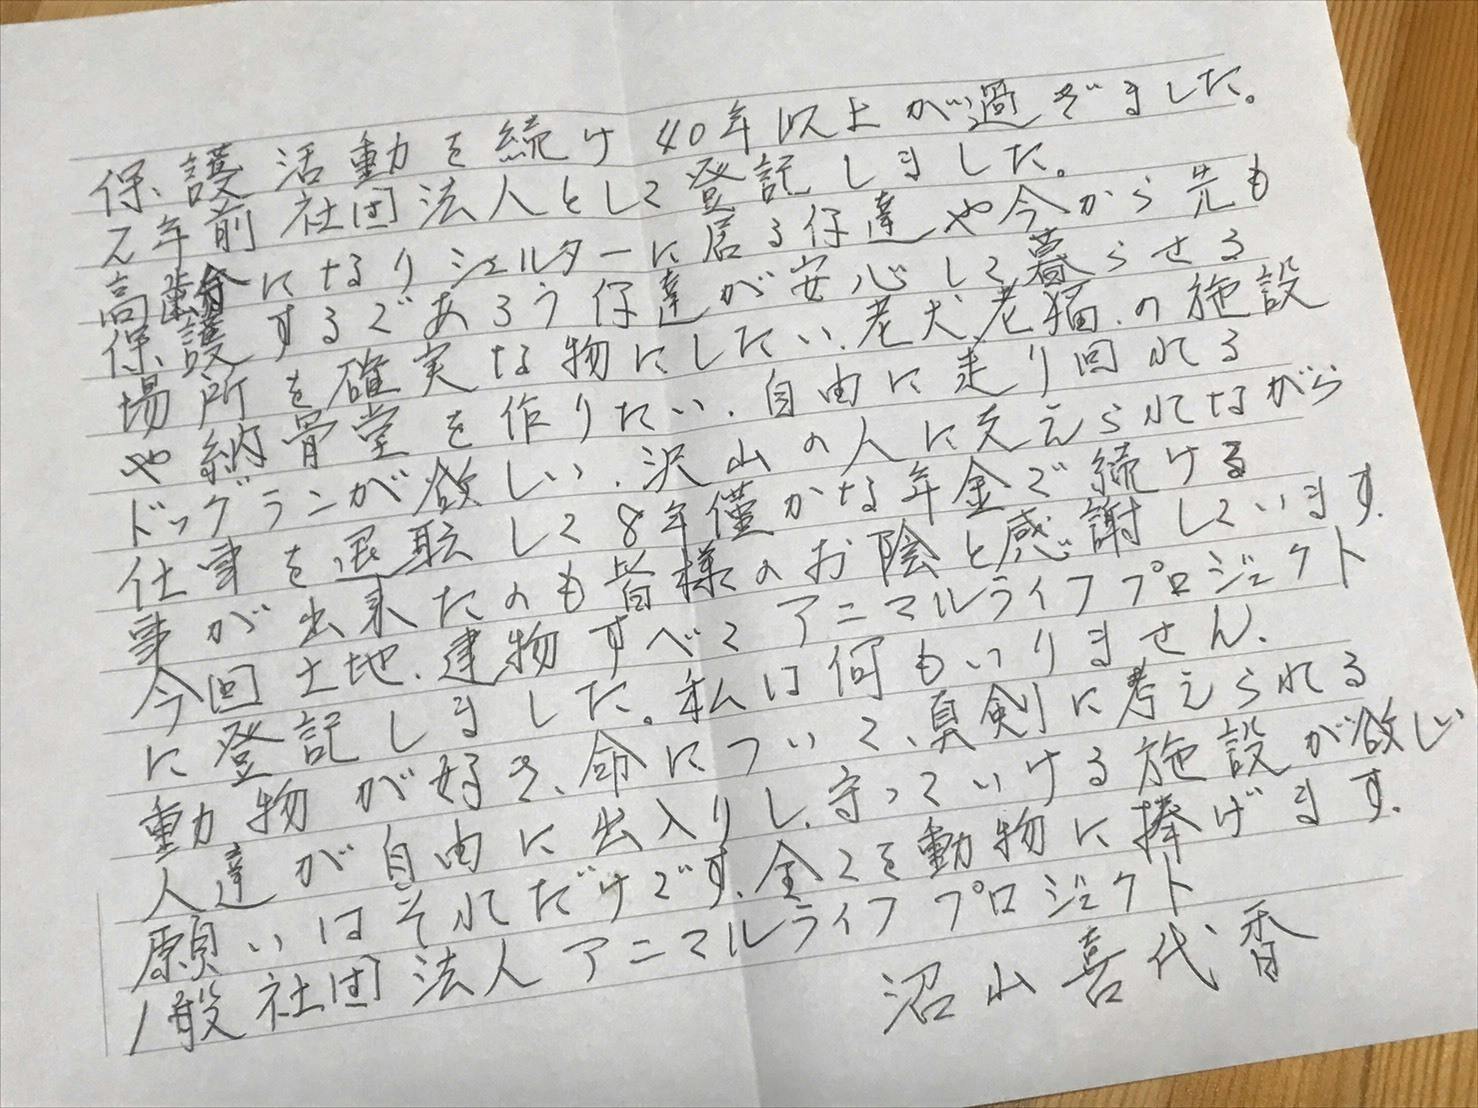 保護活動を続け40年以上が過ぎました。
2年前社団法人として登記しました。
高齢になりシェルターに居る仔達や今から先も
保護するであろう仔達が安心して暮らせる
場所を確実な物にしたい、老犬、老猫、の施設
や納骨堂を作りたい、自由に走り回れる
ドッグランが欲しい、沢山の人に支えられながら
仕事を退職して8年僅かな年金で続ける
事が出来たのも皆様のお陰と感謝しています。
今回土地、建物すべて アニマルライフプロジェクト
に登記しました。私は何もいりません、
動物が好き、命について、真剣に考えられる
人達が自由に出入りし、守っていける施設が欲しい
願いはそれだけです、全てを動物に捧げます。
1般社団法人アニマルライフプロジェクト
沼山喜代香